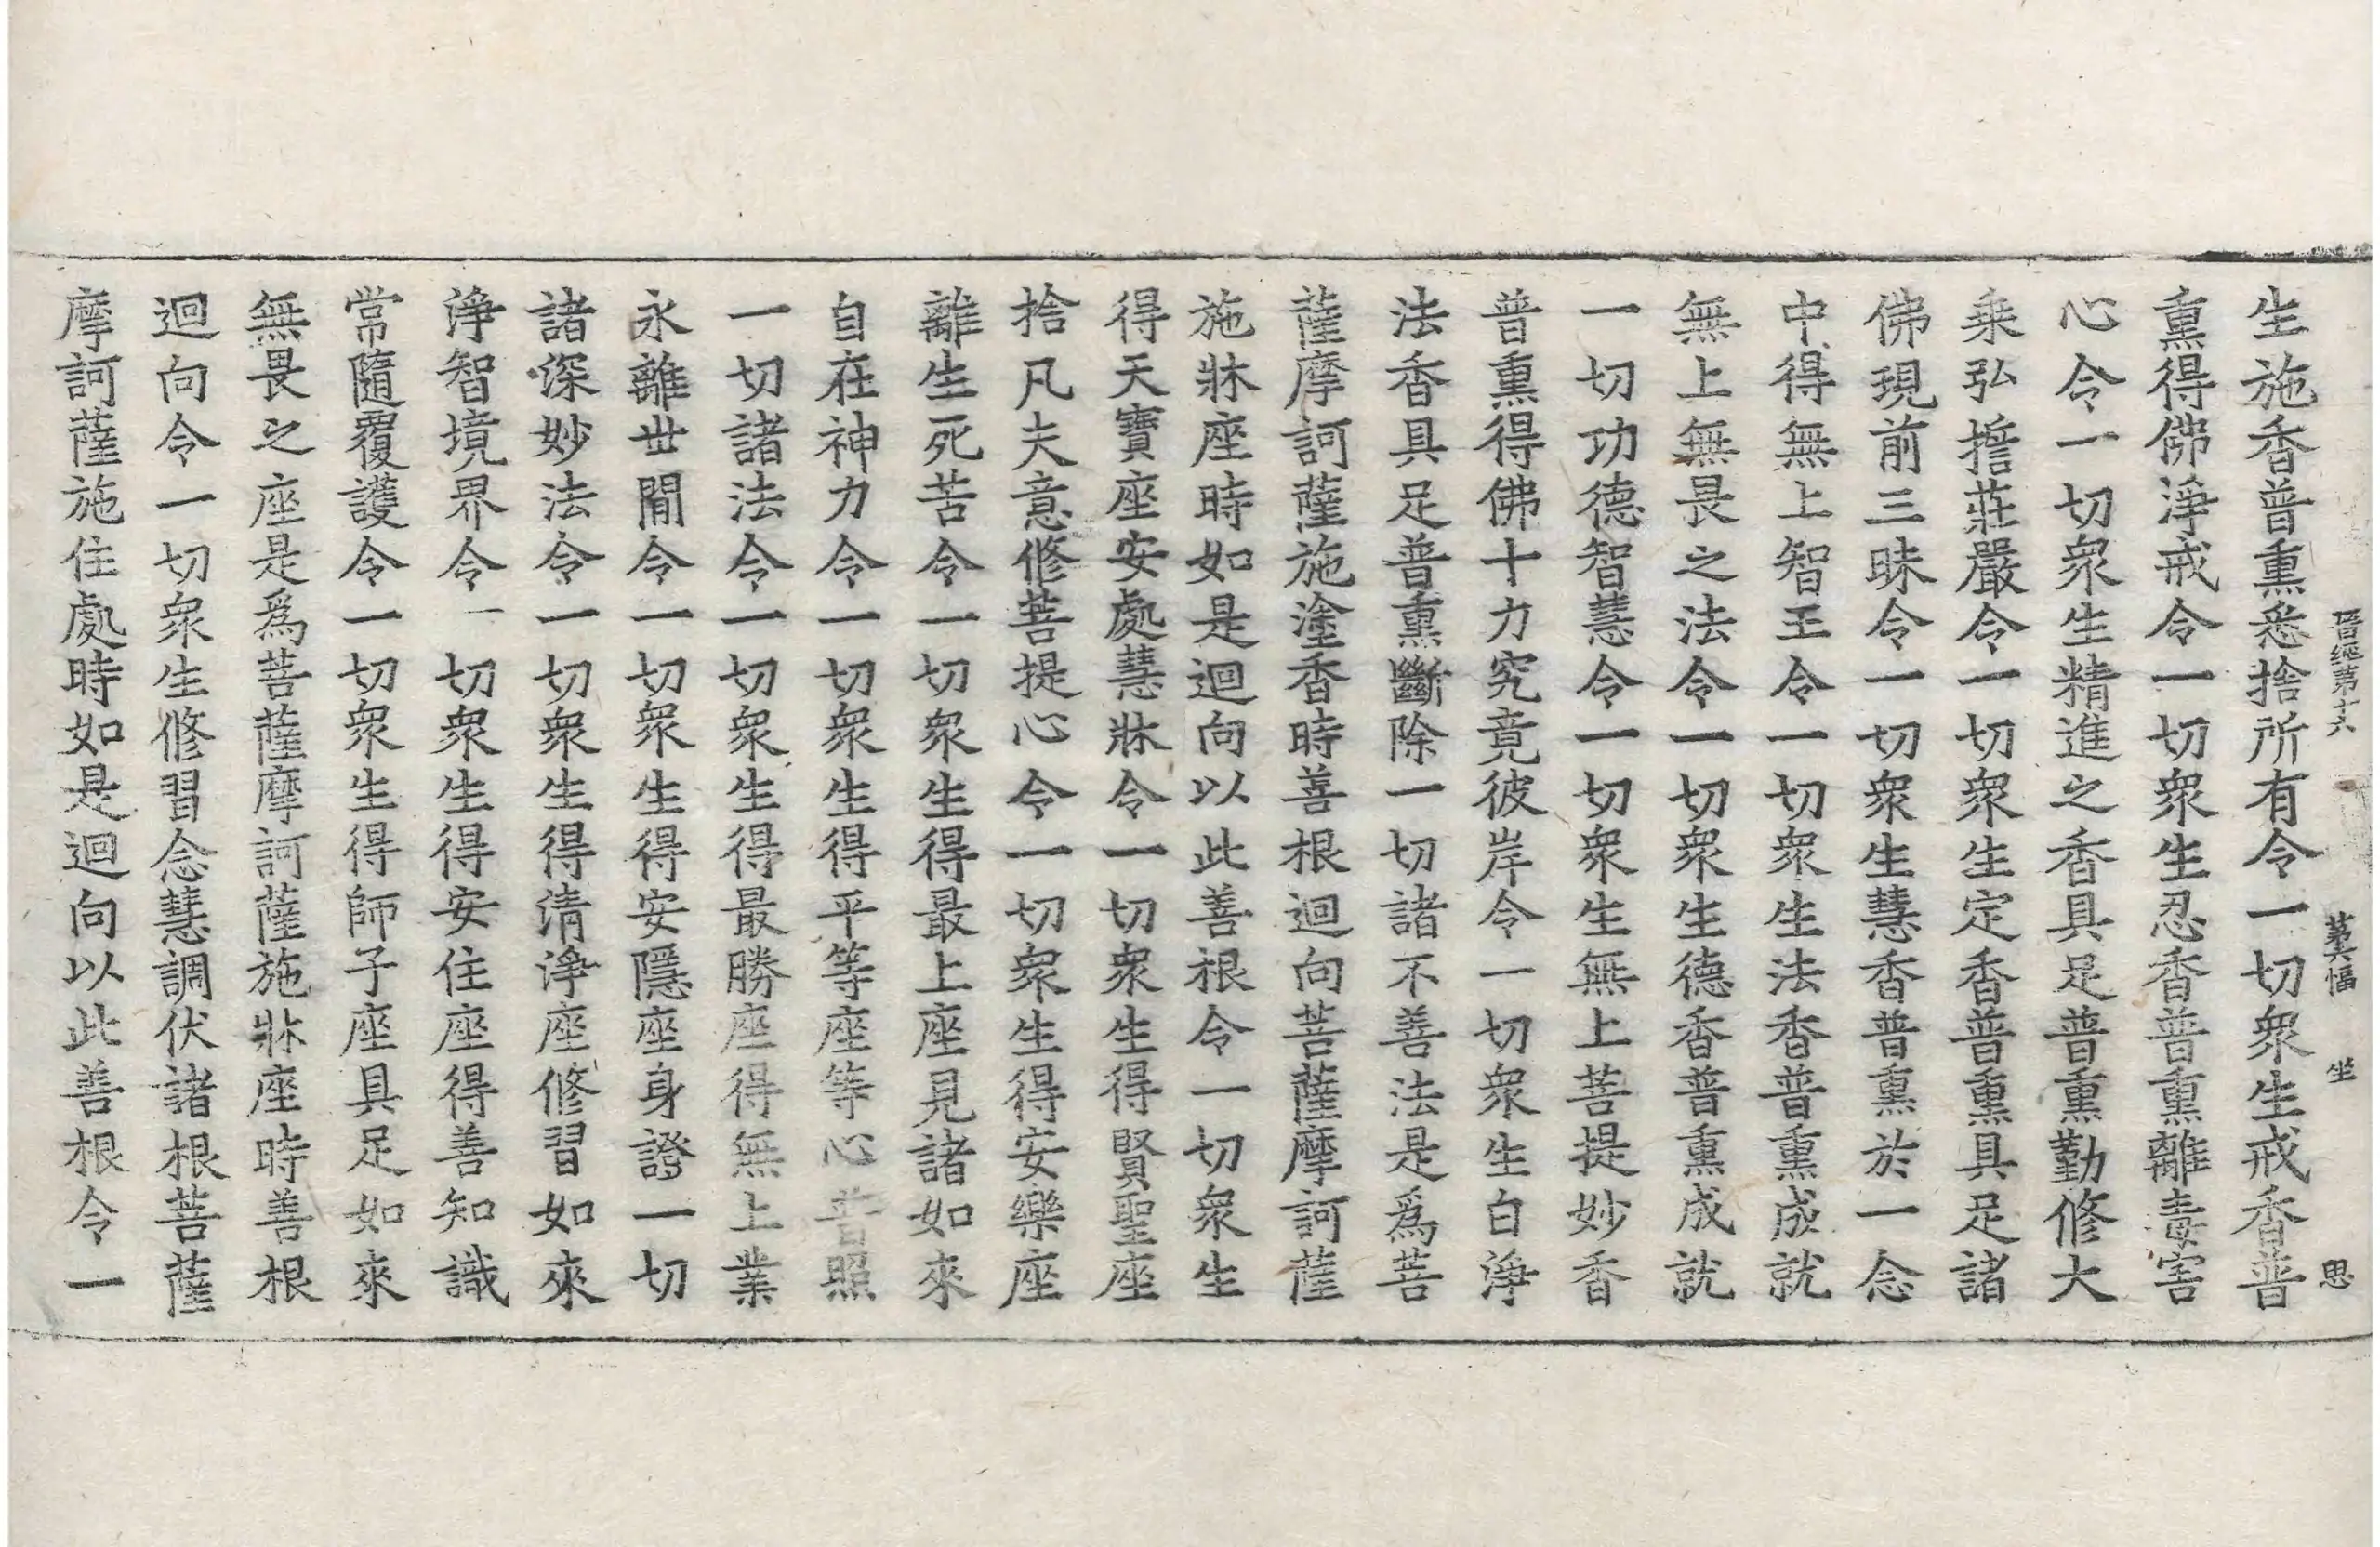 晉經第十六　第六幅　坐　思
生施香普熏悉捨所有令一切衆生戒香普
熏得佛淨戒令一切衆生忍香普熏離毒害
心令一切衆生精進之香具足普熏勤修大
乗弘擔莊嚴令一切衆生定香普熏具足諸
佛現前三昧令一切衆生慧香普熏於一念
中得無上智王令一切衆生法香普熏成就
無上無畏之法令一切衆生德香普熏成就
一切功德智慧令一切衆生無上菩提妙香
普熏得佛十力究竟彼岸令一切衆生白淨
法香具足普熏斷除一切諸不善法是爲菩
薩摩訶薩施塗香時善根迴向菩薩摩訶薩
施牀座時如是迴向以此善根令一切衆生
得天寶座安處慧牀令一切衆生得賢聖座
捨凡夫意修菩提心令一切衆生得安樂座
離生死苦令一切衆生得最上座見諸如來
自在神力令一切衆生得平等座等心普照
一切諸法令一切衆生得最勝座得無上業
永離世閒令一切衆生得安隱座身證一切
諸深妙法令一切衆生得清淨座修習如來
淨智境界令一切衆生得安住座得善知識
常隨覆護令一切衆生得師子座具足如來
無畏之座是爲菩薩摩訶薩施牀座時善根
迴向令一切衆生修習念慧調伏諸根菩薩
摩訶薩施住處時如是迴向以此善根令一